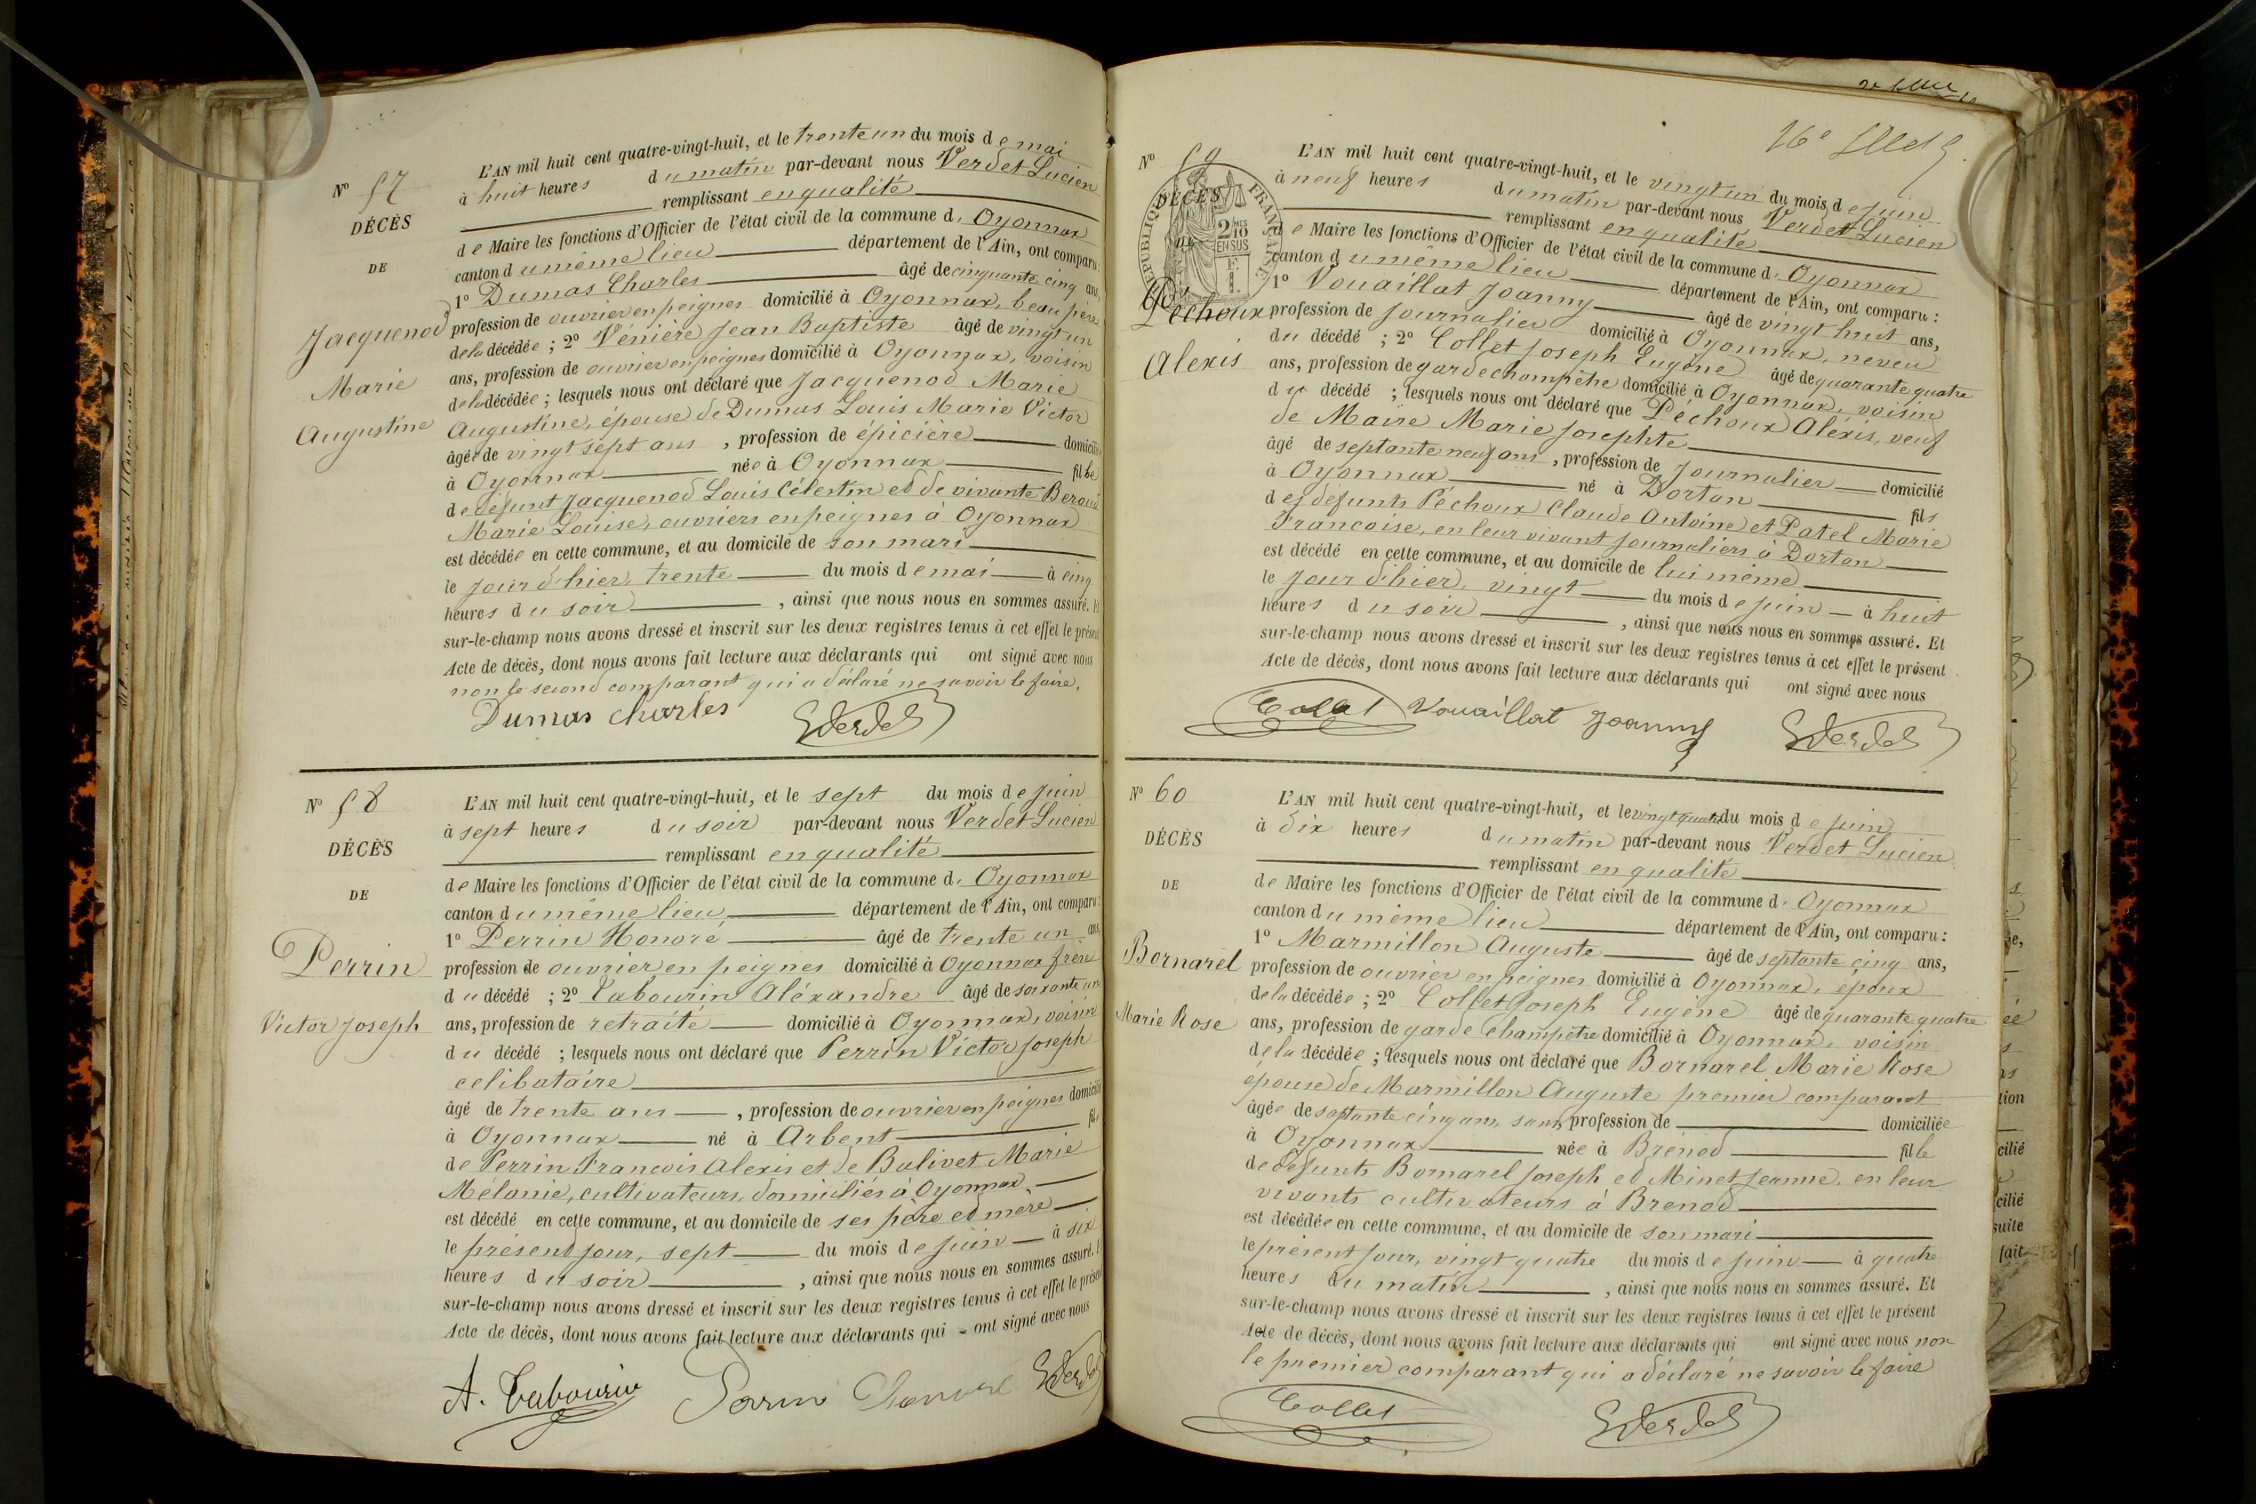 N° 57
DÉCÈS
DE
Jacquenod
Marie
Augustine
L'AN mil huit cent quatre-vingt-huit, et le trente un du mois de mai
à huit heures du matin par-devant nous Verdet Lucien
remplissant en qualité
de Maire les fonctions d'Officier de l'état civil de la commune d. Oyonnax
canton du même lieu département de l'Ain, ont comparu :
1° Dumas Charles âgé de cinquante cinq ans,
profession de ouvrier en peignes domicilié à Oyonnax, beau père
de la décédée ; 2° Vénière Jean Baptiste âgé de vingt un
ans, profession de ouvrier en peignes domicilié à Oyonnax, voisin
de la décédée ; lesquels nous ont déclaré que Jacquenod Marie
Augustine, épouse de Dumas Louis Marie Victor
âgée de vingt sept ans, profession de épicière domiciliée
à Oyonnax née à Oyonnax fille
de défunt Jacquenod Louis Célestin et de vivante Beroud
Marie Louise, ouvriers en peignes à Oyonnax
est décédée en cette commune, et au domicile de son mari
le jour d'hier, trente du mois de mai à cinq
heures du soir, ainsi que nous nous en sommes assuré. Et
sur-le-champ nous avons dressé et inscrit sur les deux registres tenus à cet effet le présent
Acte de décès, dont nous avons fait lecture aux déclarants qui ont signé avec nous
non le second comparant qui a déclaré ne savoir le faire.
Dumas Charles Verdet
N° 58
DÉCÈS
DE
Perrin
Victor Joseph
L'AN mil huit cent quatre-vingt-huit, et le sept du mois de juin
à sept heures du soir par-devant nous Verdet Lucien
remplissant en qualité
de Maire les fonctions d'Officier de l'état civil de la commune d. Oyonnax
canton du même lieu département de l'Ain, ont comparu :
1° Perrin Honoré âgé de trente un ans,
profession de ouvrier en peignes domicilié à Oyonnax frère
du décédé ; 2° Tabourin Aléxandre âgé de soixante un
ans, profession de retraité domicilié à Oyonnax, voisin
du décédé ; lesquels nous ont déclaré que Perrin Victor Joseph
celibataire
âgé de trente ans, profession de ouvrier en peignes domicilié
à Oyonnax né à Arbent fils
de Perrin Francois Alexis et de Bulivet Marie
Mélanie, cultivateurs, domiciliés à Oyonnax,
est décédé en cette commune, et au domicile de ses père et mère
le présent jour, sept du mois de juin à six
heures du soir, ainsi que nous nous en sommes assuré. Et
sur-le-champ nous avons dressé et inscrit sur les deux registres tenus à cet effet le présent
Acte de décès, dont nous avons fait lecture aux déclarants qui - ont signé avec nous
A. Tabourin Perrin Verdet
16e
N° 59
DÉCÈS
RÉPUBLIQUE FRANÇAISE
2/10mes
EN SUS
Péchoux
Alexis
L'AN mil huit cent quatre-vingt-huit, et le vingt un du mois de juin
à neuf heures du matin par-devant nous Verdet Lucien
remplissant en qualité
de Maire les fonctions d'Officier de l'état civil de la commune d. Oyonnax
canton du même lieu département de l'Ain, ont comparu :
1° Vouaillat Joanny âgé de vingt huit ans,
profession de Journalier domicilié à Oyonnax, neveu
du décédé ; 2° Collet Joseph Eugène âgé de quarante quatre
ans, profession de garde champêtre domicilié à Oyonnax, voisin
du décédé ; lesquels nous ont déclaré que Péchoux Aléxis, veuf
de Maire Marie Josephte
âgé de septante neuf ans, profession de Journalier domicilié
à Oyonnax né à Dortan fils
des défunts Péchoux Claude Antoine et Patel Marie
Francoise, en leur vivant journaliers à Dortan
est décédé en cette commune, et au domicile de lui même
le jour d'hier, vingt du mois de juin à huit
heures du soir, ainsi que nous nous en sommes assuré. Et
sur-le-champ nous avons dressé et inscrit sur les deux registres tenus à cet effet le présent
Acte de décès, dont nous avons fait lecture aux déclarants qui ont signé avec nous
Collet Vouaillat Joanny Verdet
N° 60
DÉCÈS
DE
Bornarel
Marie Rose
L'AN mil huit cent quatre-vingt-huit, et le vingt quatre du mois de juin
à dix heures du matin par-devant nous Verdet Lucien
remplissant en qualité
de Maire les fonctions d'Officier de l'état civil de la commune d. Oyonnax
canton du même lieu département de l'Ain, ont comparu :
1° Marmillon Auguste âgé de septante cinq ans,
profession de ouvrier en peignes domicilié à Oyonnax, époux
de la décédée ; 2° Collet Joseph Eugène âgé de quarante quatre
ans, profession de garde champêtre domicilié à Oyonnax, voisin
de la décédée ; lesquels nous ont déclaré que Bornarel Marie Rose
épouse de Marmillon Auguste premier comparant
âgée de septante cinq ans, sans profession de domiciliée
à Oyonnax née à Brénod fille
de défunts Bornarel Joseph et Minet Jeanne, en leur
vivants cultivateurs à Brenod
est décédée en cette commune, et au domicile de son mari
le présent jour, vingt quatre du mois de juin à quatre
heures du matin, ainsi que nous nous en sommes assuré. Et
sur-le-champ nous avons dressé et inscrit sur les deux registres tenus à cet effet le présent
Acte de décès, dont nous avons fait lecture aux déclarants qui ont signé avec nous non
le premier comparant qui a déclaré ne savoir le faire
Collet Verdet